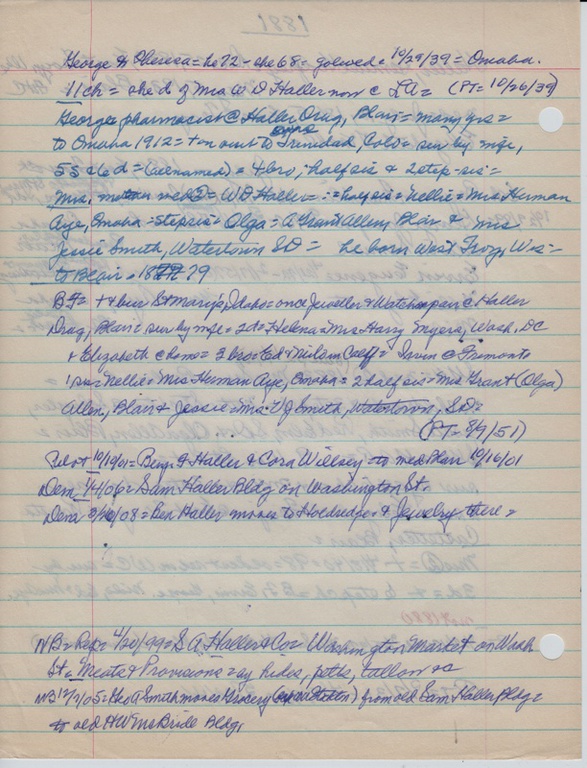 1881
George & Theresa = he 72 - she 68 = golwed = 10/29/39 = Omaha.
11ch = she d of Mrs W D Haller now c LA = (PT = 10/26/39)
George = pharmacist @ Haller Drug, Blair = many yrs =
to Omaha 1912 = & on went to Trinidad, Colo = sur by wife,
5s & 6d = (all named) = 4bro, = half sis & 2 step-sis =
Mrs. mother wed② = W D Haller = = half sis = Nellie = Mrs Herman
Aye, Omaha = stepsis = Olga = A Grant Allen, Blair & Mrs
Jessie Smith, Watertown SD = he born West Troy, Wis =
to Blair = 1879
BF = + & bur St Maries, Idaho = once Jeweller & Watch repair @ Haller
Drug, Blair = sur by wife = 2d = Helena = Mrs Harry Myers, Wash, DC
& Elizabeth c home = 3 bro = Ed & Milo in Calif = Irvin @ Fremont =
1 sis = Nellie = Mrs Herman Aye, Omaha = 2 half sis = Mrs Grant (Olga)
Allen, Blair & Jessie = Mrs W J Smith, Watertown, SD =
(PT = 8/9/51)
Pilot 10/19/01 = Benj F Haller & Cora Willsey to wed Blair 10/16/01
Dem 4/06 = Sam Haller Bldg on Washington St =
Dem 2/20/08 = Ben Haller moves to Holdredge & Jewelry there =
NB = Rep = 4/20/99 = S A Haller & Co = Washington Market on Wash
St = Meats & Provisions = buy hides, pelts, tallow &c
NB 12/7/05 = Geo A Smith moves Grocery from old Sam Haller Bldg =
to old HW McBride Bldg,